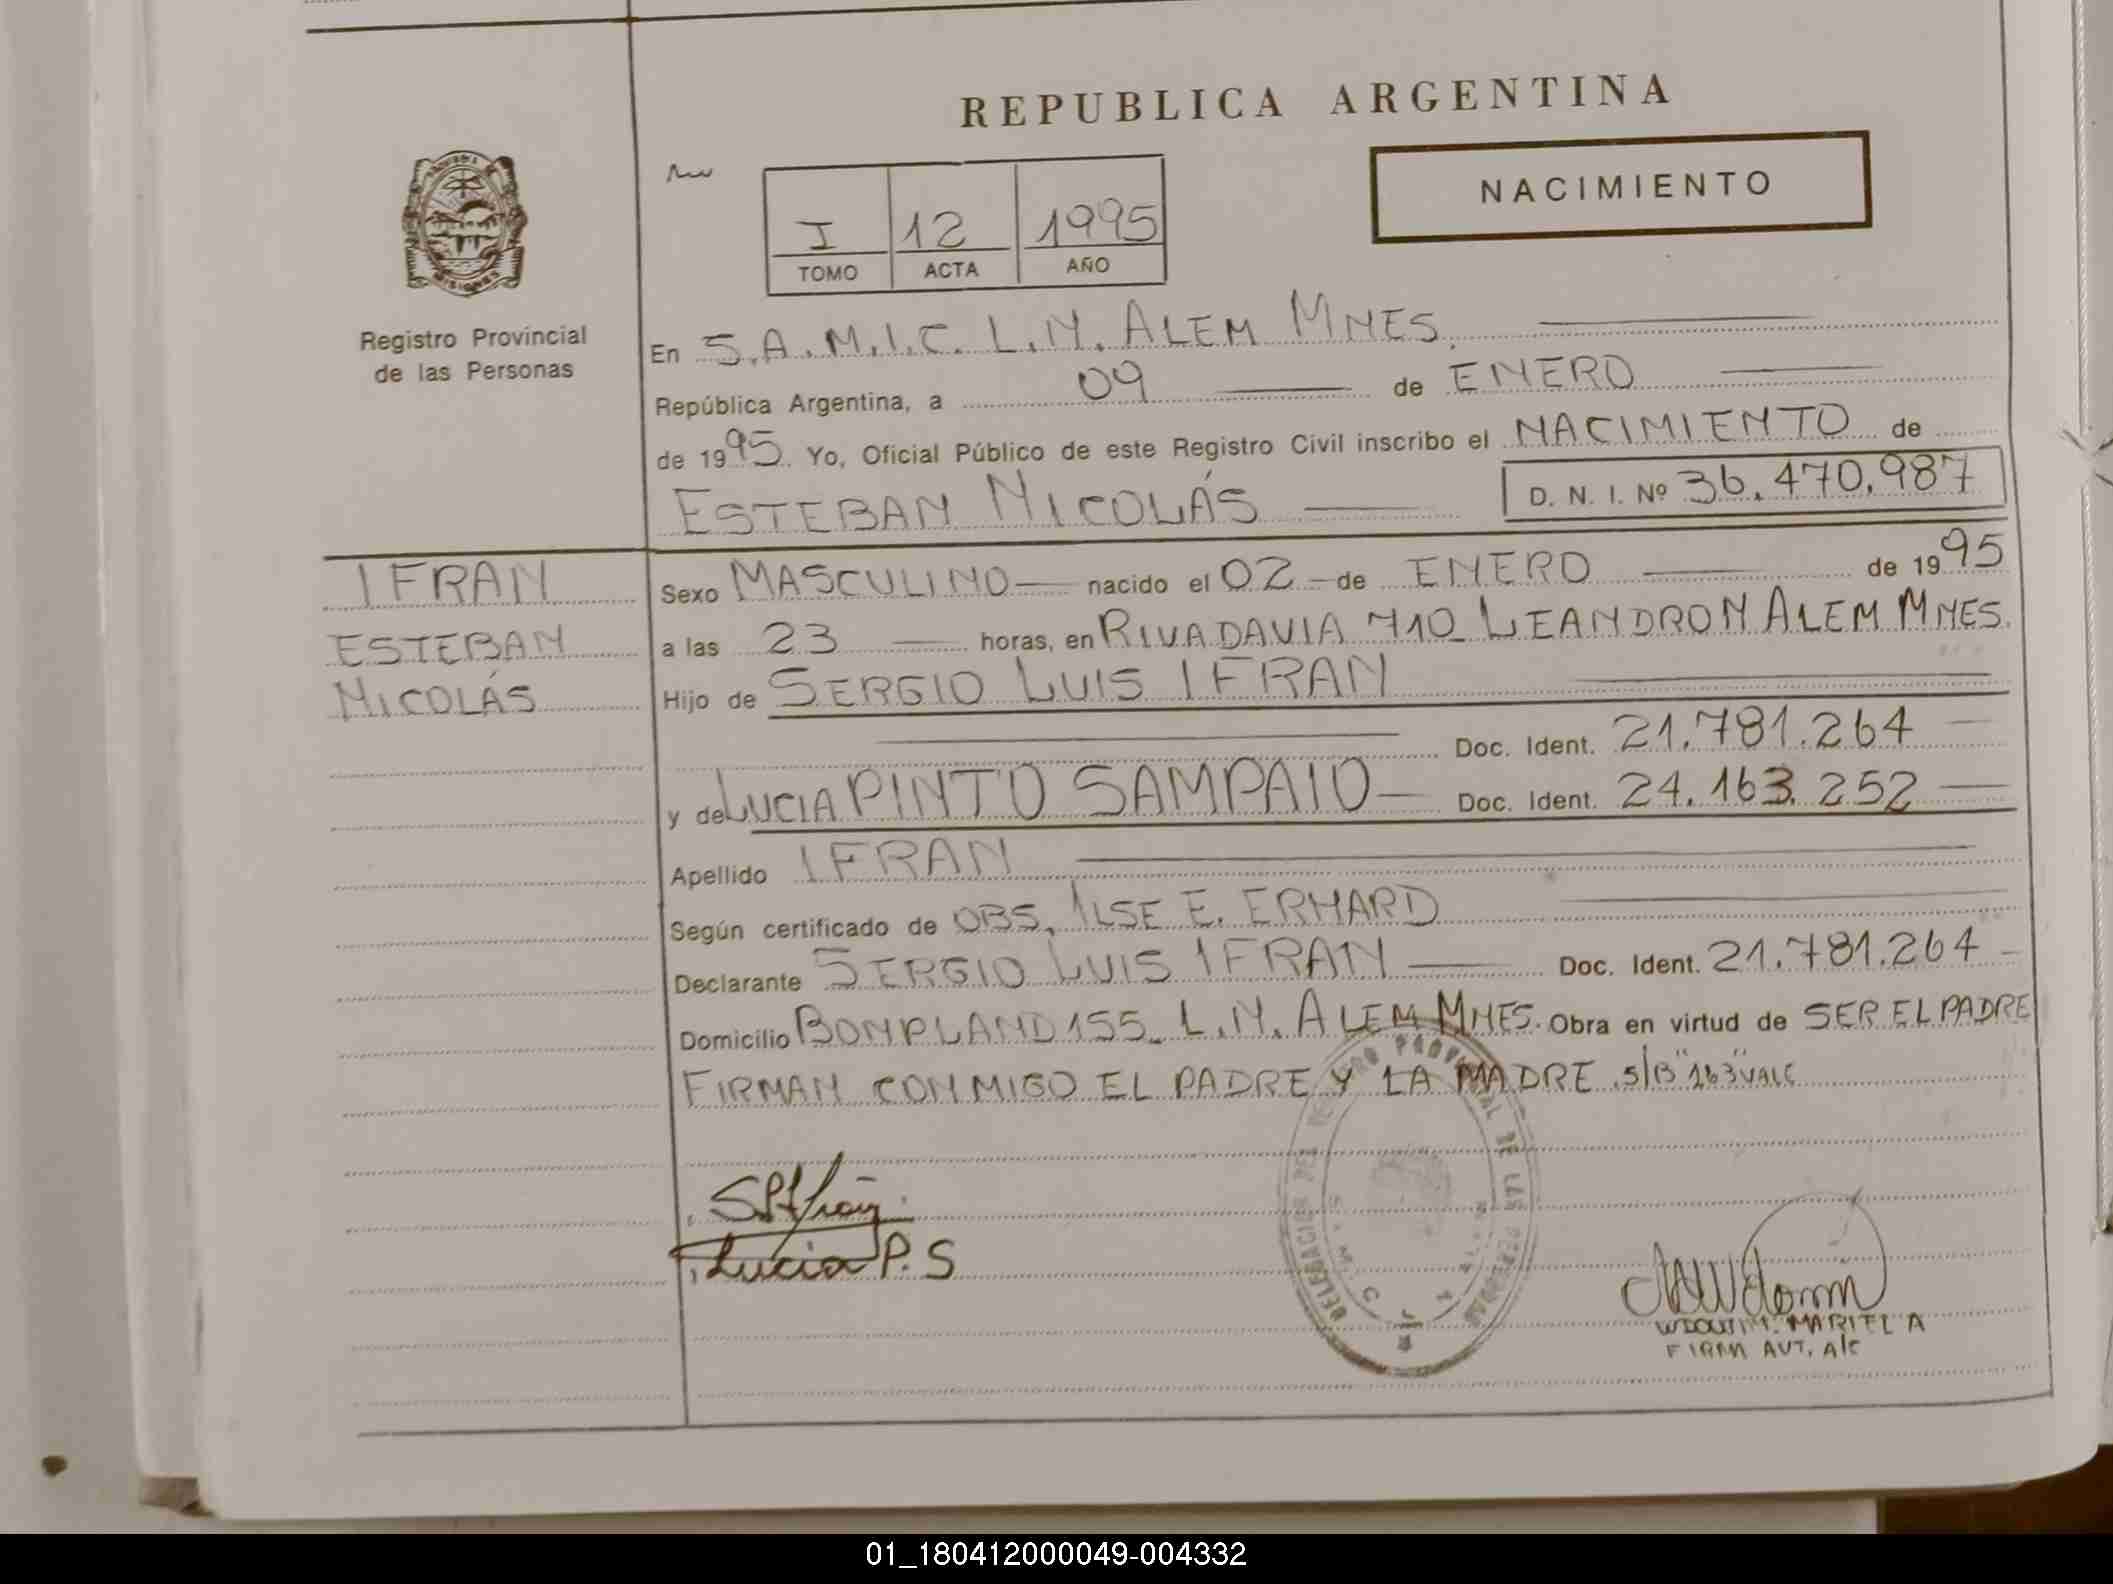 REPUBLICA ARGENTINA
NACIMIENTO
I 12 1995
TOMO ACTA AÑO
Registro Provincial
de las Personas
En S.A.M.I.C. L.N. ALEM MNES.
República Argentina, a 09 de ENERO
de 1995. Yo, Oficial Público de este Registro Civil inscribo el NACIMIENTO de
ESTEBAN NICOLÁS D. N. I. Nº 36.470.987
IFRAN
ESTEBAN
NICOLÁS
Sexo MASCULINO nacido el 02 de ENERO de 1995
a las 23 horas, en RIVADAVIA 710 LEANDRO N ALEM MNES.
Hijo de SERGIO LUIS IFRAN
Doc. Ident. 21.781.264
y de LUCIA PINTO SAMPAIO Doc. Ident. 24.163.252
Apellido IFRAN
Según certificado de OBS. ILSE E. ERHARD
Declarante SERGIO LUIS IFRAN Doc. Ident. 21.781.264
Domicilio BONPLAND 155 L.N. ALEM MNES. Obra en virtud de SER EL PADRE
FIRMAN CONMIGO EL PADRE Y LA MADRE. S/B "163" VALE
Lucia P. S
DELEGACION DEL REGISTRO PROVINCIAL DE LAS PERSONAS
MARIELA
FIRM AUT. A/C
01_180412000049-004332